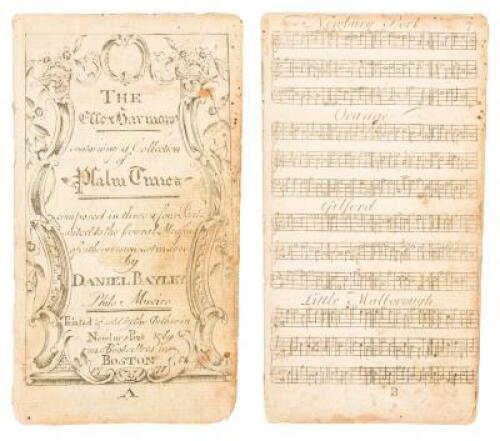 THE
Essex Harmony
containing a Collection
of
Psalm Tunes
composed in three & four Parts
suited to the several
by
DANIEL BAYLEY
Philo Musico
Printed & sold by the Author in
Newbury Port & by
BOSTON
A
Newbury Port 7
Orange
Gilford
Little Malborough
B